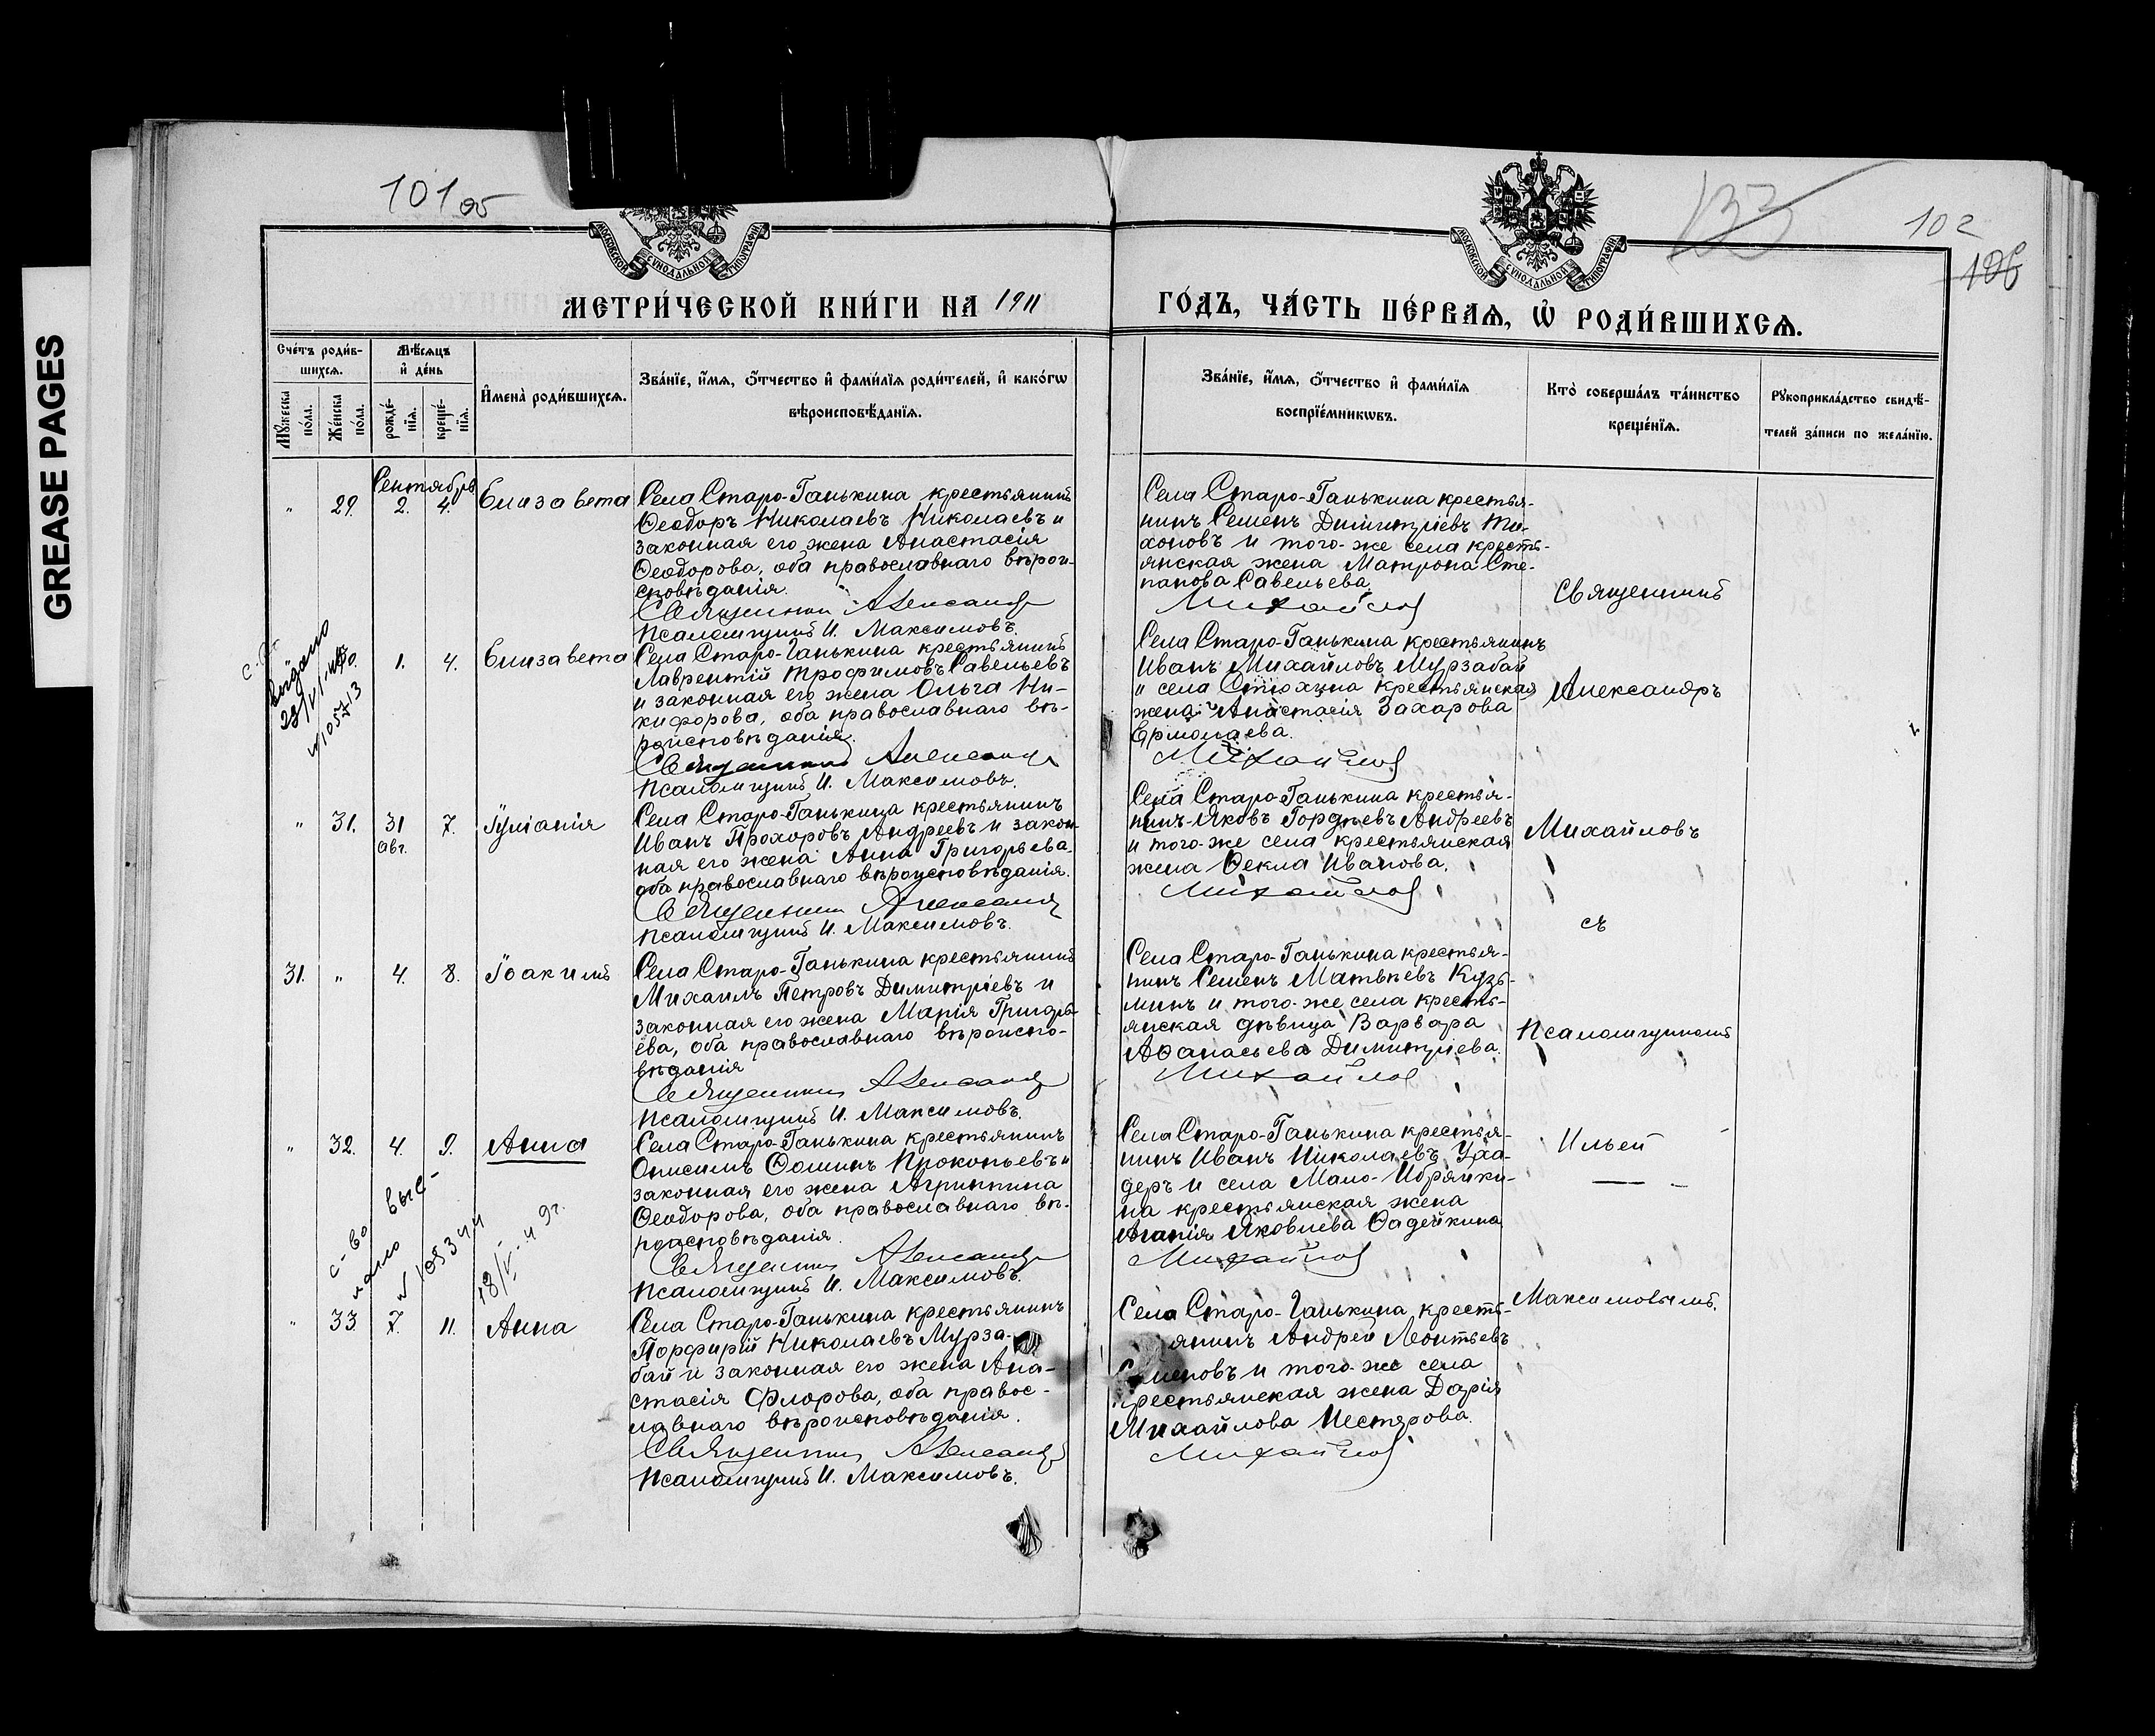 GREASE PAGES
101 об
133
102
106
МОСКОВСКОЙ СѴНОДАЛЬНОЙ ТИПОГРАФІИ
МОСКОВСКОЙ СѴНОДАЛЬНОЙ ТИПОГРАФІИ
МЕТРИ́ЧЕСКОЙ КНИ́ГИ НА 1911
ГО́ДЪ, ЧА́СТЬ ПЕ́РВАѦ, Ѡ҆ РОДИ́ВШИХСѦ.
Сче́тъ роди́в-
шихсѧ.
Мꙋ́жеска по́ла.
Же́нска по́ла.
Мѣ́сѧцъ
и҆ де́нь
рожде́-
нїѧ.
креще́-
нїѧ.
И҆мена̀ роди́вшихсѧ.
Зва́нїе, и҆́мѧ, ѻ҆́тчество и҆ фами́лїѧ роди́телей, и҆ како́гѡ
вѣроисповѣ́данїѧ.
Зва́нїе, и҆́мѧ, ѻ҆́тчество и҆ фами́лїѧ
воспрїе́мникѡвъ.
Кто̀ соверша́лъ та́инство
креще́нїѧ.
Рꙋкоприкла́дство свидѣ́-
телей за́писи по жела́нїю.
Сентябрь
" 29. 2. 4. Елизавета
Села Старо-Ганькина крестьянинъ
Ѳеодоръ Николаевъ Николаевъ и
законная его жена Анастасія
Ѳеодорова, оба православнаго вѣрои-
сповѣданія.
Священникъ Александр
Псаломщикъ И. Максимовъ.
Села Старо-Ганькина крестья-
нинъ Семенъ Димитріевъ Ти-
хоновъ и того-же села кресть-
янская жена Матрона Сте-
панова Савельева.
Михайлов
Священникъ
выдано
№ 105713
30. 1. 4. Елизавета
Села Старо-Ганькина крестьянинъ
Лаврентій Трофимовъ Савельевъ
и законная его жена Ольга Ни-
кифорова, оба православнаго вѣ-
роисповѣданія.
Священникъ Александр
Псаломщикъ И. Максимовъ.
Села Старо-Ганькина крестьянинъ
Иванъ Михайловъ Мурзабай
и села Стюхина крестьянская
жена Анастасія Захарова
Ермолаева.
Михайлов
Александръ
" 31. 31 авг. 7. Іуліанія
Села Старо-Ганькина крестьянинъ
Иванъ Прохоровъ Андреевъ и закон-
ная его жена Анна Григорьева.
оба православнаго вѣроисповѣданія.
Священникъ Александр
Псаломщикъ И. Максимовъ.
Села Старо-Ганькина крестья-
нинъ Яковъ Гордѣевъ Андреевъ
и того-же села крестьянская
жена Ѳекла Иванова.
Михайлов
Михайловъ
съ
31. " 4. 8. Іоакимъ
Села Старо-Ганькина крестьянинъ
Михаилъ Петровъ Димитріевъ и
законная его жена Марія Григорь-
ева, оба православнаго вѣроиспо-
вѣданія
Священникъ Александр
Псаломщикъ И. Максимовъ.
Села Старо-Ганькина крестья-
нинъ Семенъ Матвѣевъ Кузь-
минъ и того-же села кресть-
янская дѣвица Варвара
Аѳанасьева Димитріева.
Михайлов
Псаломщикомъ
" 32. 4. 9. Анна
Села Старо-Ганькина крестьянинъ
Онисимъ Ѳоминъ Прокопьевъ и
законная его жена Агриппина
Ѳеодорова, оба православнаго вѣ-
роисповѣданія.
Священникъ Александр
Псаломщикъ И. Максимовъ.
Села Старо-Ганькина крестья-
нинъ Иванъ Николаевъ Уха-
деръ и села Мало-Ибряйки-
на крестьянская жена
Агапія Яковлева Ѳадейкина
Михайлов
Ильей
с-во выс-
лано
№ 105344
18/V-49г.
" 33. 7. 11. Анна
Села Старо-Ганькина крестьянинъ
Порфирій Николаевъ Мурза-
бай и законная его жена Ана-
стасія Флорова, оба правос-
лавнаго вѣроисповѣданія.
Священникъ Александр
Псаломщикъ И. Максимовъ.
Села Старо-Ганькина кресть-
янинъ Андрей Леонтьевъ
Семеновъ и того-же села
крестьянская жена Дарія
Михайлова Нестярова.
Михайлов
Максимовымъ.